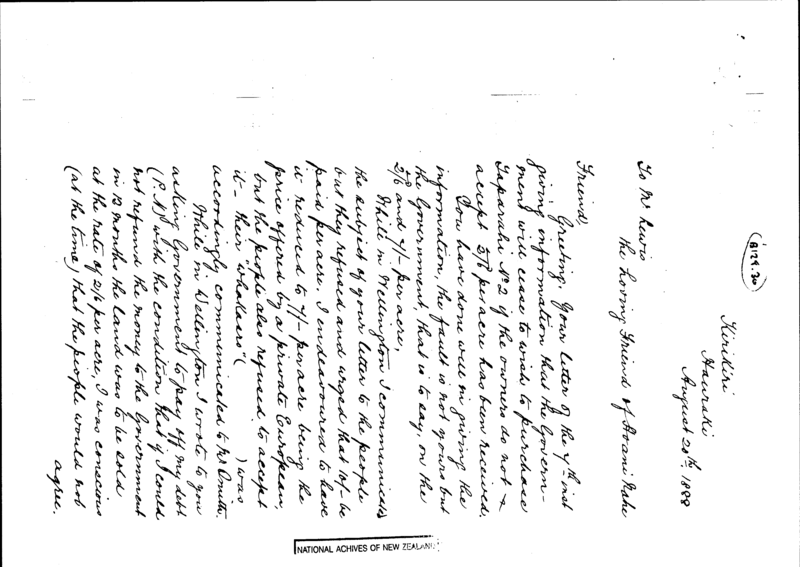 (8129.30)
Kirikiri
Hauraki
August 20th 1888
To Mr Lewis
the Loving Friend of Hoani Nahe
Friend,
Greeting. Your letter of the 7th inst
giving information that the Govern-
ment will cease to wish to purchase
Taparahi No 2 if the owners do not
accept 5/6 per acre has been received.
You have done well in giving the
information, the fault is not yours but
the Government, that is to say, on the
5/6 and 4/- per acre.
While in Wellington I communicated
the subject of your letter to the people
but they refused and urged that 10/- be
paid per acre. I endeavoured to have
it reduced to 7/- per acre being the
price offered by a private European,
but the people also refused to accept
it - their " " ( ) was
accordingly communicated to Mr Smith.
While in Wellington I wrote to you
asking Government to pay off my debt
(P.N) with the condition that if I could
not refund the money to the Government
in 12 months the land was to be sold
at the rate of 2/6 per acre, I was conscious
(at the time) that the people would not
agree.
NATIONAL ACHIVES OF NEW ZEALAND